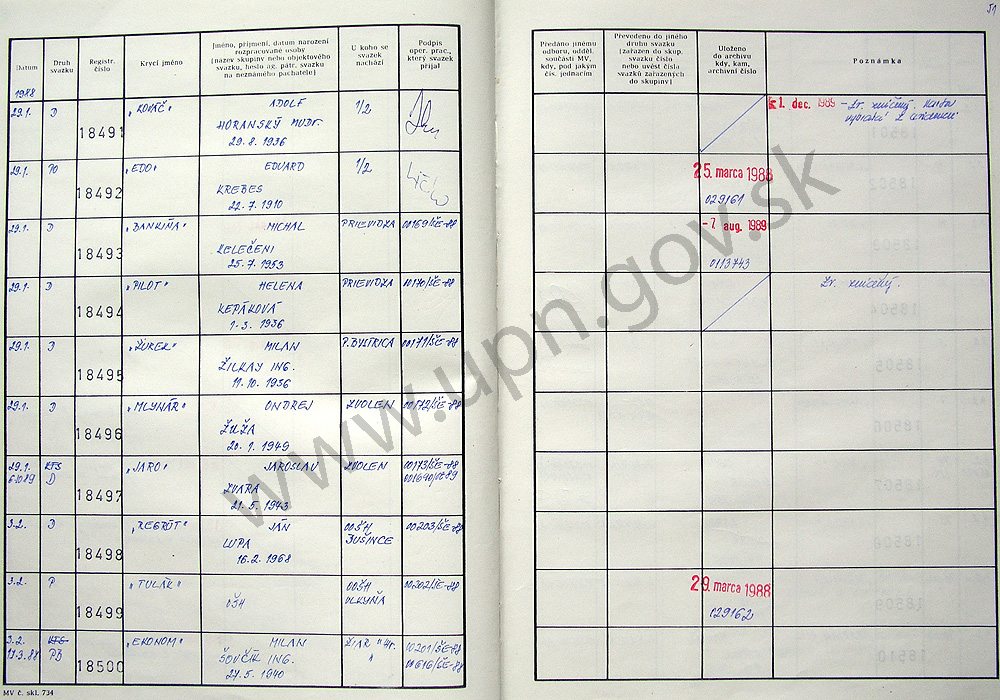 51
Datum
Druh svazku
Registr. číslo
Krycí jméno
Jméno, příjmení, datum narození
rozpracované osoby
(název skupiny nebo objektového
svazku, heslo ag. pátr. svazku
na neznámého pachatele)
U koho se
svazek
nachází
Podpis
oper. prac.,
který svazek
přijal
Předáno jinému
odboru, odděl.
součásti MV,
kdy, pod jakým
čís. jednacím
Převedeno do jiného
druhu svazku
(zařazen do skup.
svazku číslo
nebo uvést čísla
svazků zařazených
do skupiny)
Uloženo
do archivu
kdy, kam,
archivní číslo
Poznámka
1988
29.1. D 18491 "KOVÁČ" ADOLF 1/2
HORANSKÝ MUDr.
29. 8. 1936
1. dec. 1989 - Zr. zničený.
29.1. PO 18492 "EDO" EDUARD 1/2
KREBES
22. 7. 1910
25. marca 1988
029161
29.1. D 18493 "BANKIŇA" MICHAL PRIEVIDZA 00169/ŠE-88
KELEČENI
25. 7. 1953
-7 aug. 1989
0113743
29.1. D 18494 "PILOT" HELENA PRIEVIDZA 00170/ŠE-88
KEPÁKOVÁ
1. 3. 1936
Zr. zničený.
29.1. D 18495 "ŽUREK" MILAN P. BYSTRICA 00171/ŠE-88
ŽILKAY ING.
11. 10. 1956
29.1. D 18496 "MLYNÁR" ONDREJ ZVOLEN 00172/ŠE-88
ŽUŽA
20. 1. 1949
29.1. KTS 18497 "JARO" JAROSLAV ZVOLEN 00173/ŠE-88
D
ZVARA
21. 5. 1943
3.2. D 18498 "REGRÚT" JÁN OOŠH BUŠINCE 00203/ŠE-88
LUPA
16. 2. 1968
3.2. P 18499 "TULÁK" OOŠH VLKYŇA 00202/ŠE-88
OŠH
29. marca 1988
029162
3.2. KTS 18500 "EKONOM" MILAN ŽIAR n/Hr. 00201/ŠE-88
11.3.88 PB
ŠOVČÍK ING.
00616/ŠE-88
27. 5. 1940
MV č. skl. 734
www.upn.gov.sk